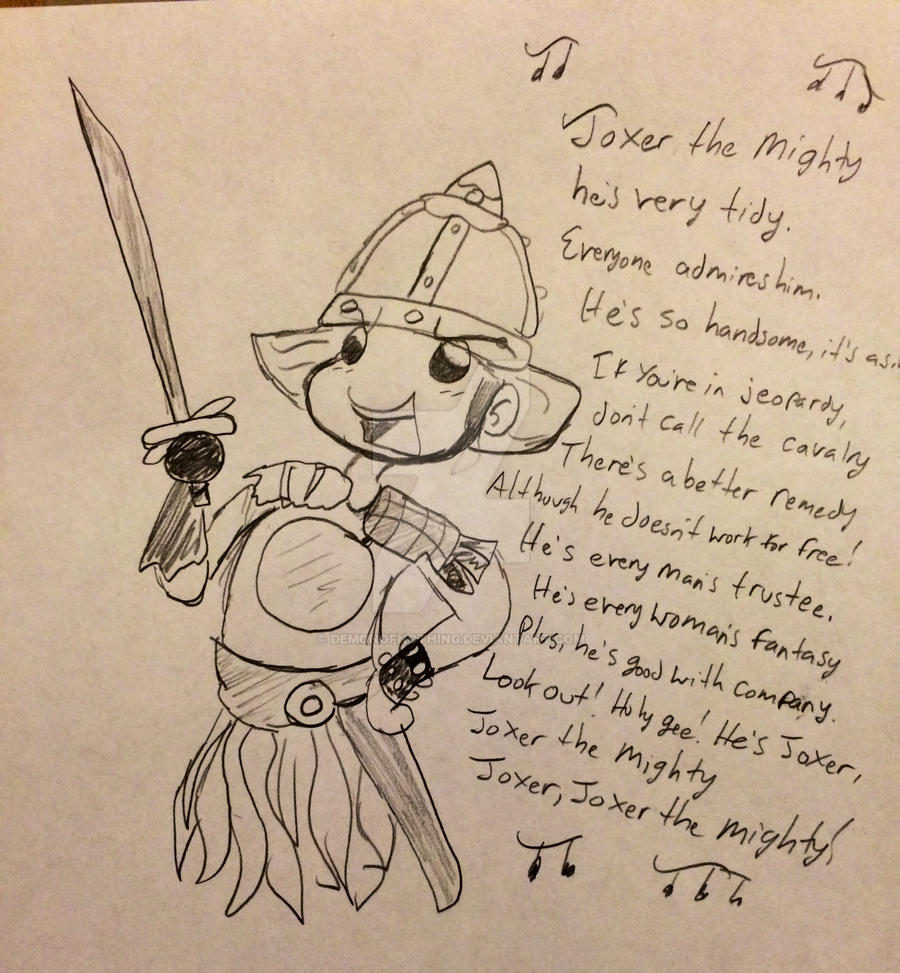 Joxer the Mighty
he's very tidy.
Everyone admires him.
He's so handsome, it's a
If You're in jeopardy,
don't call the cavalry
There's a better remedy
Although he doesn't work for free!
He's every man's trustee.
He's every woman's fantasy
Plus, he's good with company.
Look out! Holy gee! He's Joxer,
Joxer the Mighty
Joxer, Joxer the mighty!